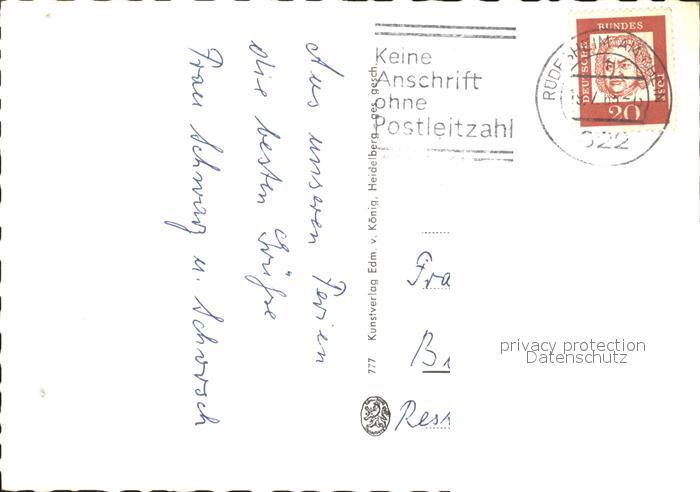 Aus unseren Ferien
die besten Grüße
Frau Schwarz u. Schorsch
777 Kunstverlag Edm. v. König, Heidelberg - ges. gesch.
Keine
Anschrift
ohne
Postleitzahl
RÜDESHEIM AM
622
DEUTSCHE BUNDESPOST
20
Fra
privacy protection
Datenschutz